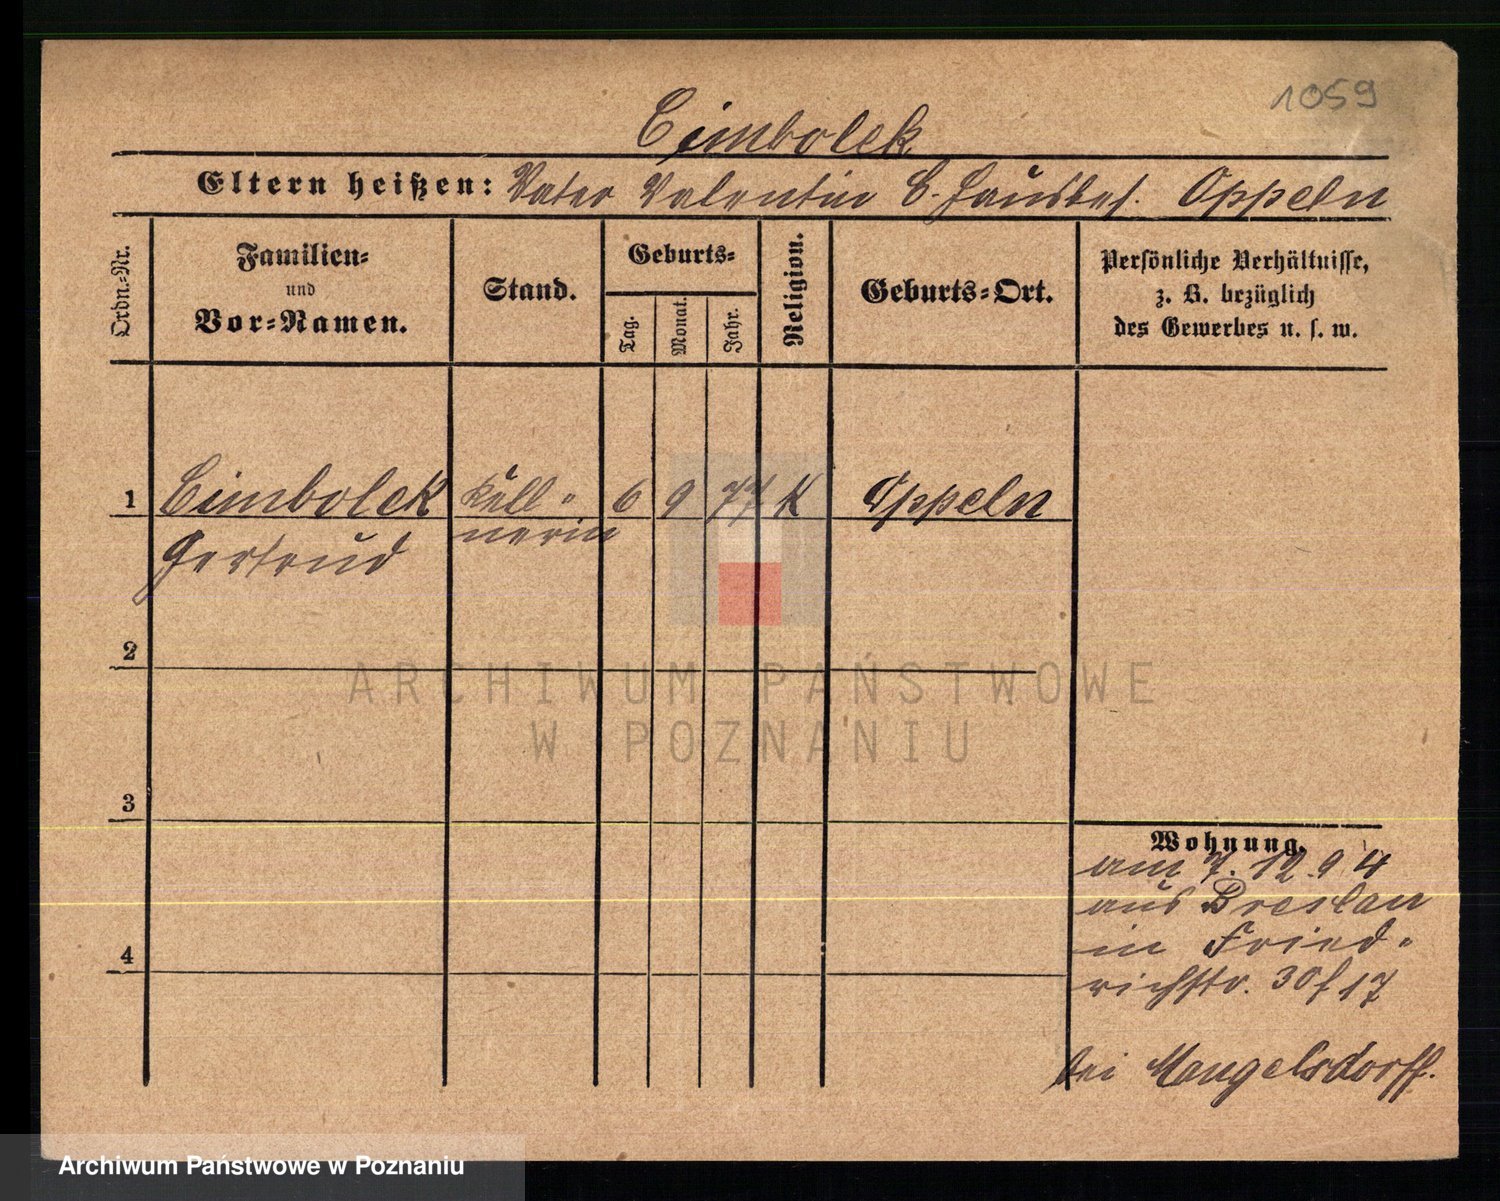 1059
Cimbolek
Eltern heißen: Vater Valentin C. Hausbes. Oppeln
Ordn.-Nr.
Familien-
und
Vor-Namen.
Stand.
Geburts-
Tag.
Monat.
Jahr.
Religion.
Geburts-Ort.
Persönliche Verhältnisse,
z. B. bezüglich
des Gewerbes u. s. w.
1 Cimbolek Kell- 6 9 77 K Oppeln
Gertrud nerin
2
3
4
Wohnung.
am 7. 12. 94
aus Breslau
in Fried-
richstr. 30 f 17
bei Mangelsdorff.
ARCHIWUM PAŃSTWOWE
W POZNANIU
Archiwum Państwowe w Poznaniu